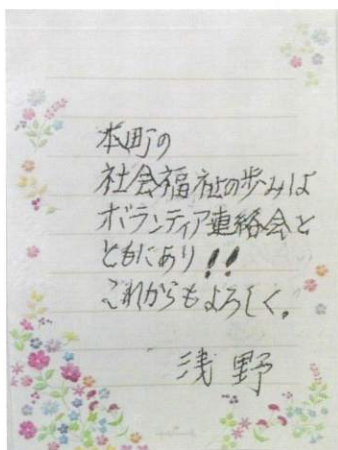 本町の
社会福祉の歩みは
ボランティア連絡会と
ともにあり!!
これからもよろしく。
浅野